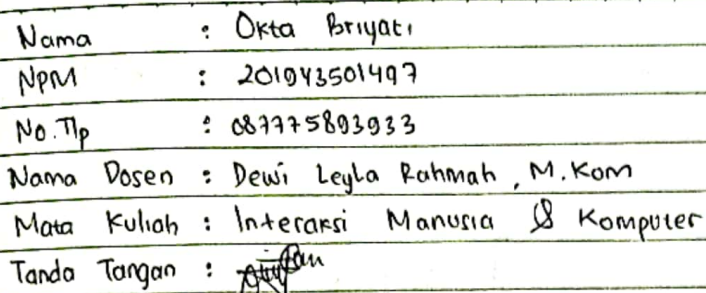 Nama : Okta Briyati
NPM : 201943501497
No. Tlp : 087775893933
Nama Dosen : Dewi Leyla Rahmah, M.Kom
Mata Kuliah : Interaksi Manusia & Komputer
Tanda Tangan :